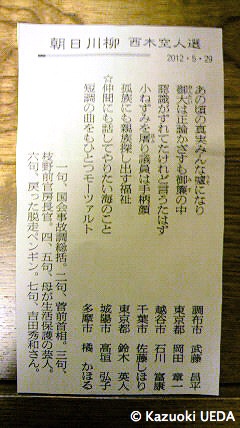 朝日川柳 西木空人選
2012・5・29
あの頃の真実みんな嘘になり 調布市 武藤 昌平
御大は正論かざすも御簾の中 東京都 岡田 章一
認識がずれてたけれど言うたはず 越谷市 石川 富康
小ねずみを屠り議員は手柄顔 千葉市 佐藤しほり
孤族にも親族探し出す福祉 東京都 鈴木 英人
☆仲間にも話してやりたい海のこと 城陽市 高垣 弘子
短調の曲をもひとつモーツアルト 多摩市 橘 かほる
一句、国会事故調総括。二句、菅前首相。三句、
枝野前官房長官。四、五句、母が生活保護の芸人。
六句、戻った脱走ペンギン。七句、吉田秀和さん。
© Kazuoki UEDA